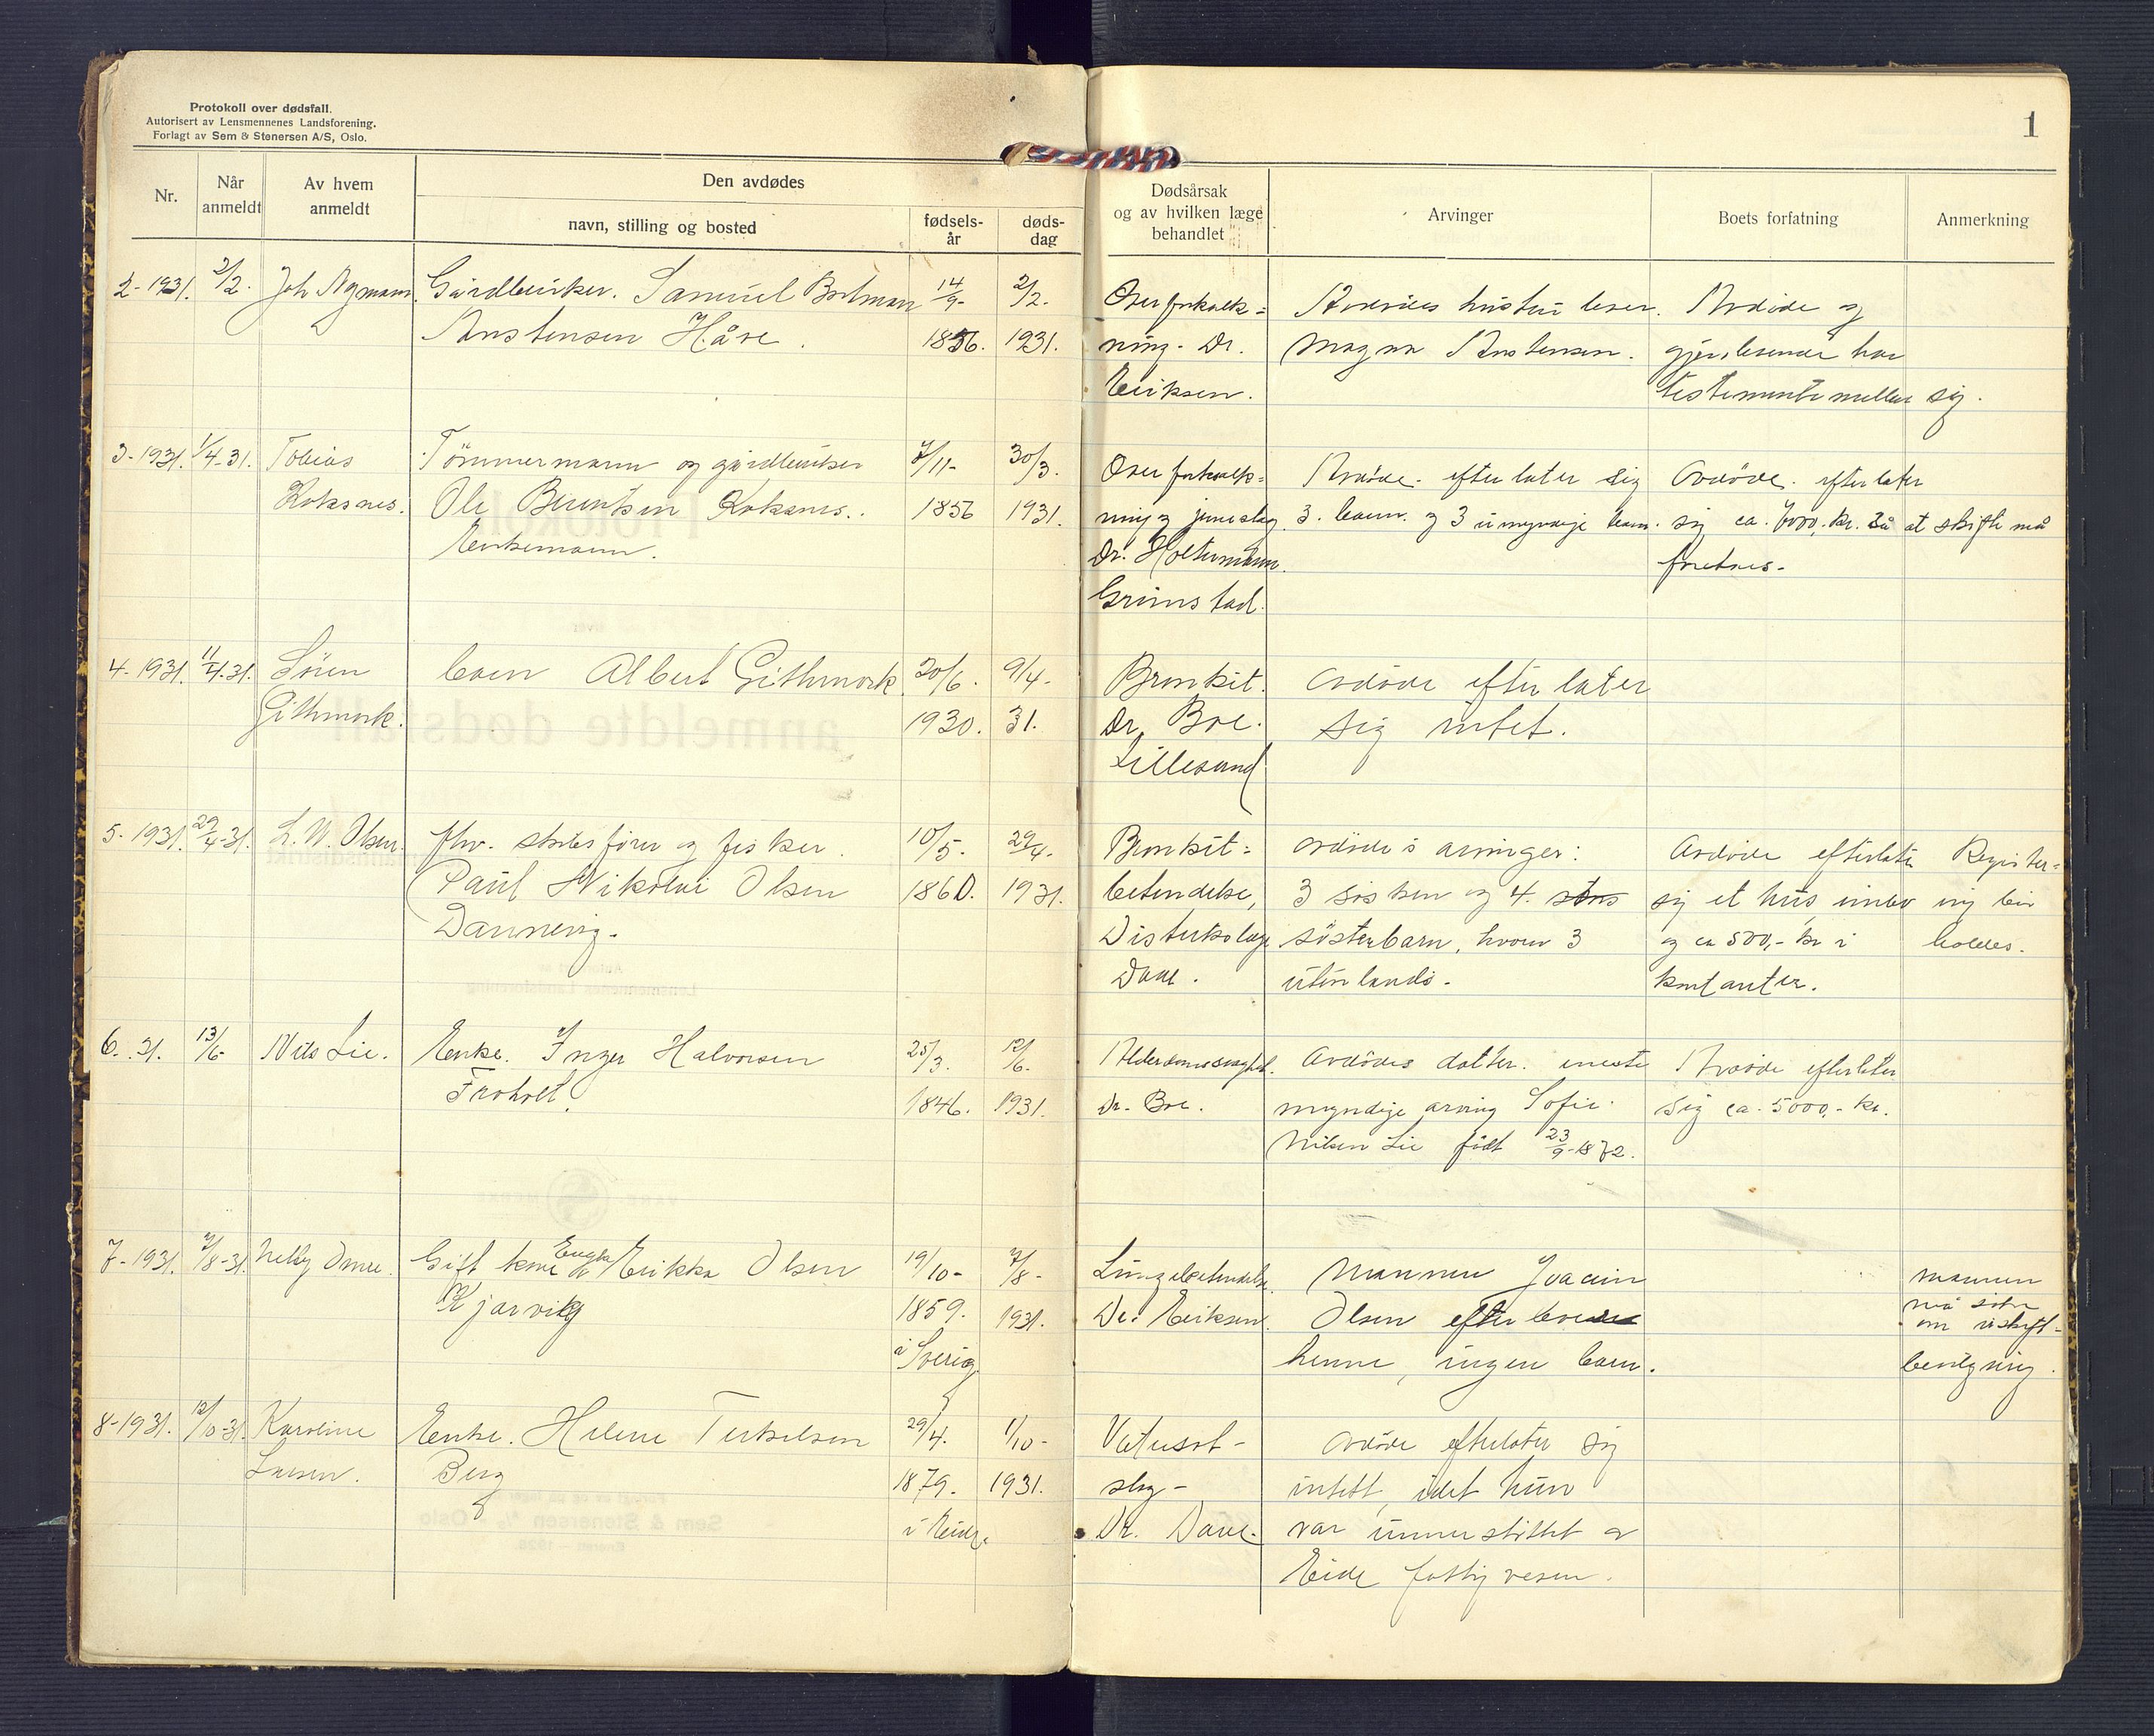 Protokoll over dødsfall.
Autorisert av Lensmennenes Landsforening.
Forlagt av Sem & Stenersen A/S, Oslo.
1
Nr.
Når
anmeldt
Av hvem
anmeldt
Den avdødes
navn, stilling og bosted
fødsels-
år
døds-
dag
Dødsårsak
og av hvilken læge
behandlet
Arvinger
Boets forfatning
Anmerkning
2-1931. 2/2. Joh Nymann Gårdbruker. Samuel 14/9- 2/2.
Anstensen Håre. 1856. 1931.
Overforkalk=
ning. Dr.
Eiriksen.
Avdødes hustru lever.
Magna Anstensen.
Avdøde og
gjenlevende har
testamente mellem sig.
3-1931. 1/4-31. Tobias Tömmermann og gårdbruker 7/11- 30/3.
Koksnes. Ole Berentsen Koksnes. 1856 1931.
Enkemann.
Overforkalk=
ning og
Dr. Holtermann.
Grimstad.
Avdöde. efterlater sig
3. barn. og 3 umyndige barn.
Avdöde. efterlater
sig ca. 6000,- kr. Så at skifte må
foretaes.
4-1931. 11/4-31. Sören barn Albert Githmork 20/6. 9/4-
Githmork. 1930. 31.
Bronkit.
Dr. Boe.
Lillesand
Avdöde efterlater
sig intet.
5-1931. 29/4-31. L. N. Olsen. fhv. skibsförer og fisker. 10/5. 29/4-
Paul Nikolai Olsen 1860. 1931.
Dannevig.
Bronkit=
betendelse,
Distriktslæge
Dane.
Avdödes arvinger:
3 søsken og 4. stns
søsterbarn, hvorav 3
utenlands.
Avdöde efterlater
sig et hus, innbo
og ca 500,- kr i
kontanter.
Register=
ing blir
holdes.
6. 31. 13/6- Nils Lie. Enke. Inger Halvorsen 25/3. 12/6.
Froholt. 1846. 1931.
Alderdomssvaghet.
Dr. Boe.
Avdödes datter. eneste
myndige arving Sofie
Nilsen Lie födt 23/9-1872.
Avdöde efterlater
sig ca. 5000,- kr.
7-1931. 7/8-31. Nelly Omre. Gift kone Engla Erikka Olsen 19/10- 7/8-
Kjarvik 1859. 1931.
i Sverig
Lungebetendelse.
Dr. Eiriksen.
Mannen Joacim
Olsen efterlever
henne, ingen barn.
mannen
må söke
om uskift-
bevilgning.
8-1931. 12/10-31. Karoline Enke. Helene Terkelsen 29/4. 1/10-
Larsen. Berg 1879. 1931.
i Eide.
Vatusot-
slag-
Dr. Dane.
Avdöde efterlater sig
intett, idet hun
var understöttet av
Eide fattigvesen.